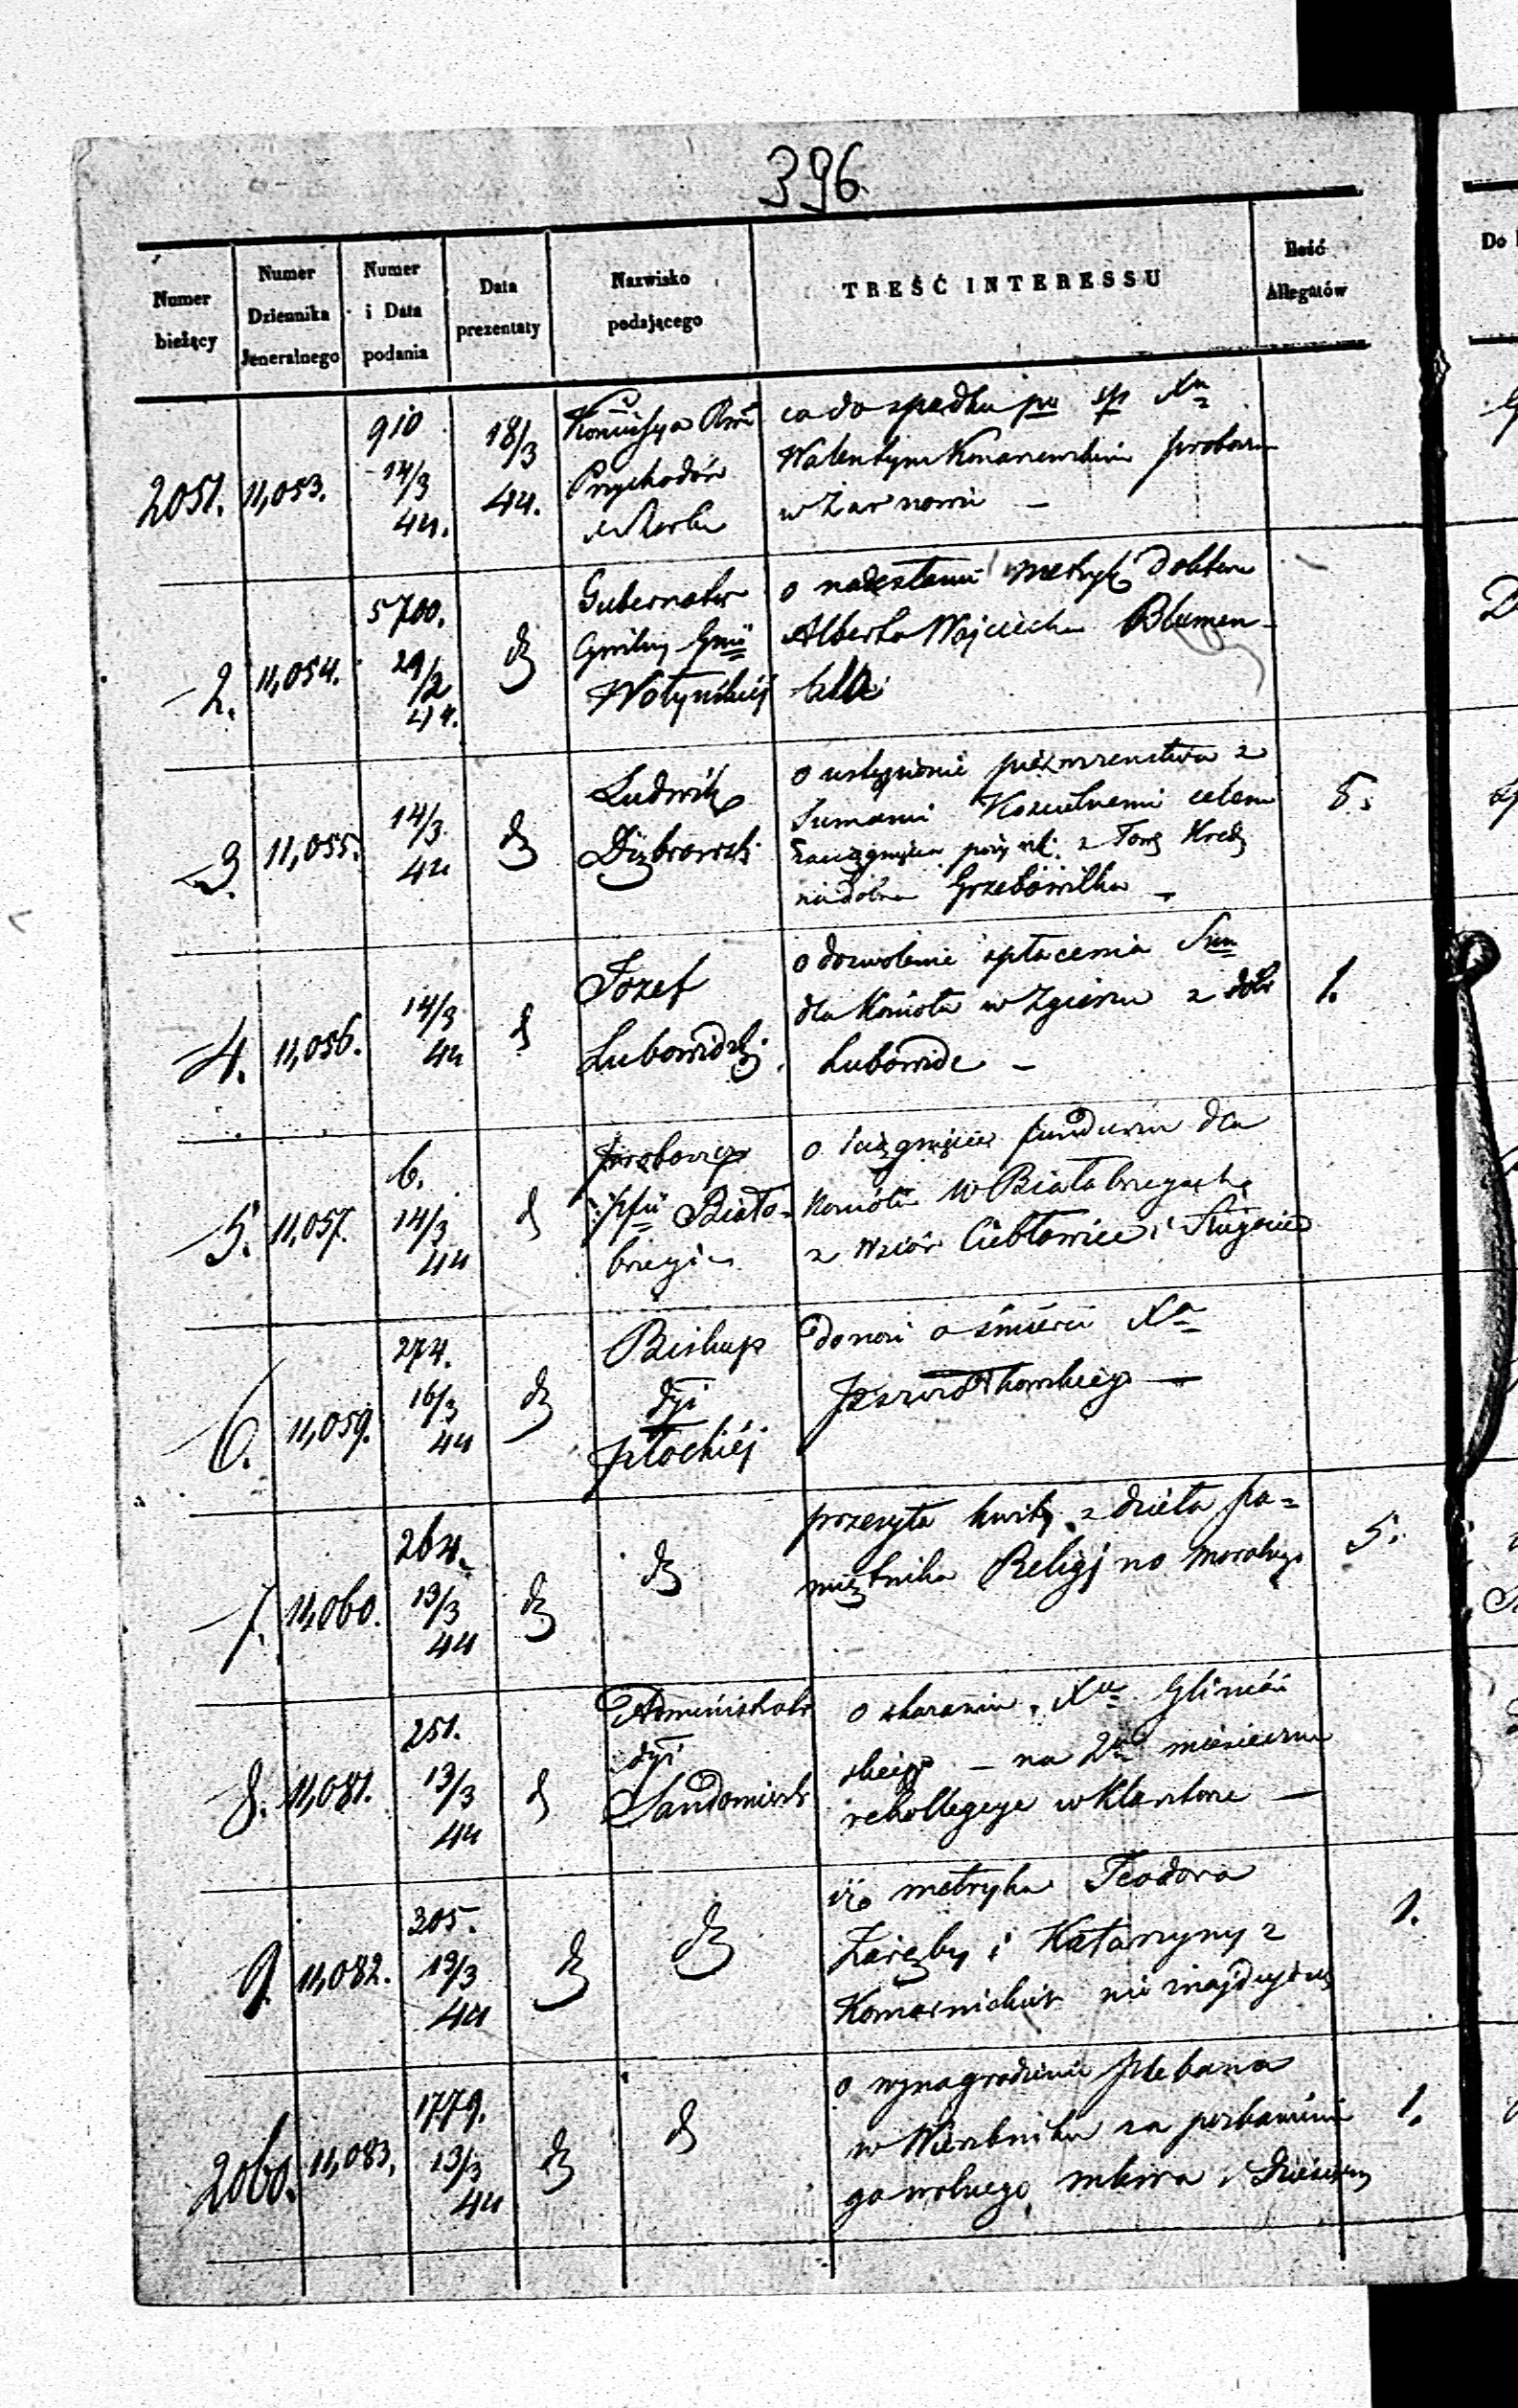 396
Numer bieżący
Numer Dziennika Jeneralnego
Numer i Data podania
Data prezentaty
Nazwisko podającego
TREŚĆ INTERESSU
Ilość Allegatów
Do
2051. 11,053. 910 14/3 44. 18/3 44.
Przychodów
i Skarbu
co do spadku po śp Xu
Walentym Konarzewskim probosz
w Żarnowie —
2. 11,054. 5700. 29/2 44. d
Gubernator
Cywilny Gnii
Wołyńskiej
o nadesłanie metryk doktora
Alberta Wojciecha Blumen-
tala
3. 11,055. 14/3 44 d
Ludwik
Dąbrowski
o ustąpienie pierwszeństwa z
Sumami Kościelnemi celem
zaciągnięcia pożyczki z Tow Kred
na dobra Grzebowilka —
5.
4. 11,056. 14/3 44 d
Jozef
Lubowidzki
o dozwolenie spłacenia Sum
dla Kościoła w Zgierzu z dóbr
Lubowidz —
1.
5. 11,057. 6. 14/3 44 d
Proboszcz
pfii Biało-
brzegi
o ściągnięcie funduszu dla
Kościoła w Białobrzegach
z Wsiów Ciebłowice i Sługocice
6. 11,059. 274. 16/3 44 d
Biskup
dyi
płockiéj
donosi o śmierci Xa
7. 11,060. 264. 13/3 44 d
d
przesyła kwity z dzieła pa=
miętnika Religijno moralnego
5.
8. 11,081. 251. 13/3 44 d
Administrator
dyi
Sandomiersk
o skazaniu Xa Gliniań
skiego — na 2u miesieczne
rekollegcye w Klasztorze —
9. 11,082. 305. 13/3 44 d
d
iż metryka Teodora
Zaręby i Katarzyny z
Komornickich nie znajduje się
1.
2060. 11,083. 1779. 13/3 44 d
d
o wynagrodzenie plebana
w Wierzbniku za pozbawienie
go wolnego mlewa i Dziesięciny
1.